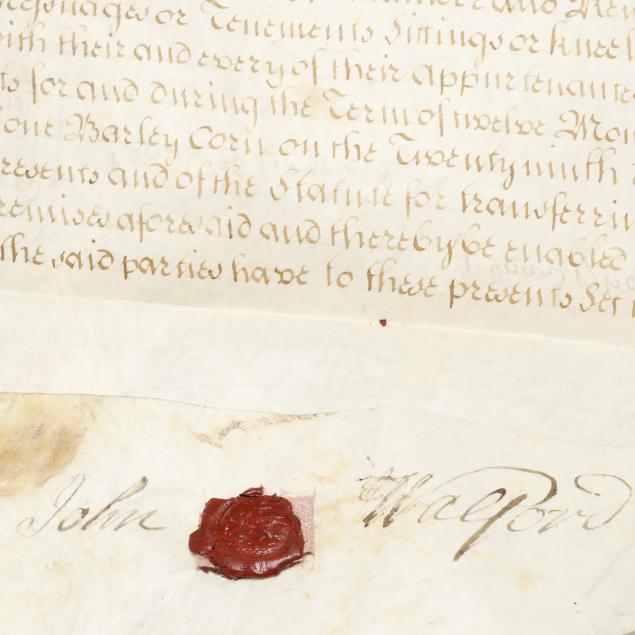 or Tenements Sittings or kneel
with their and every of their appurtenances
to for and during the Term of twelve Mon
one Barley Corn on the Twenty ninth
resents and of the Statute for transferrin
remises aforesaid and thereby be enabled
the said parties have to these presents Set
John Walford